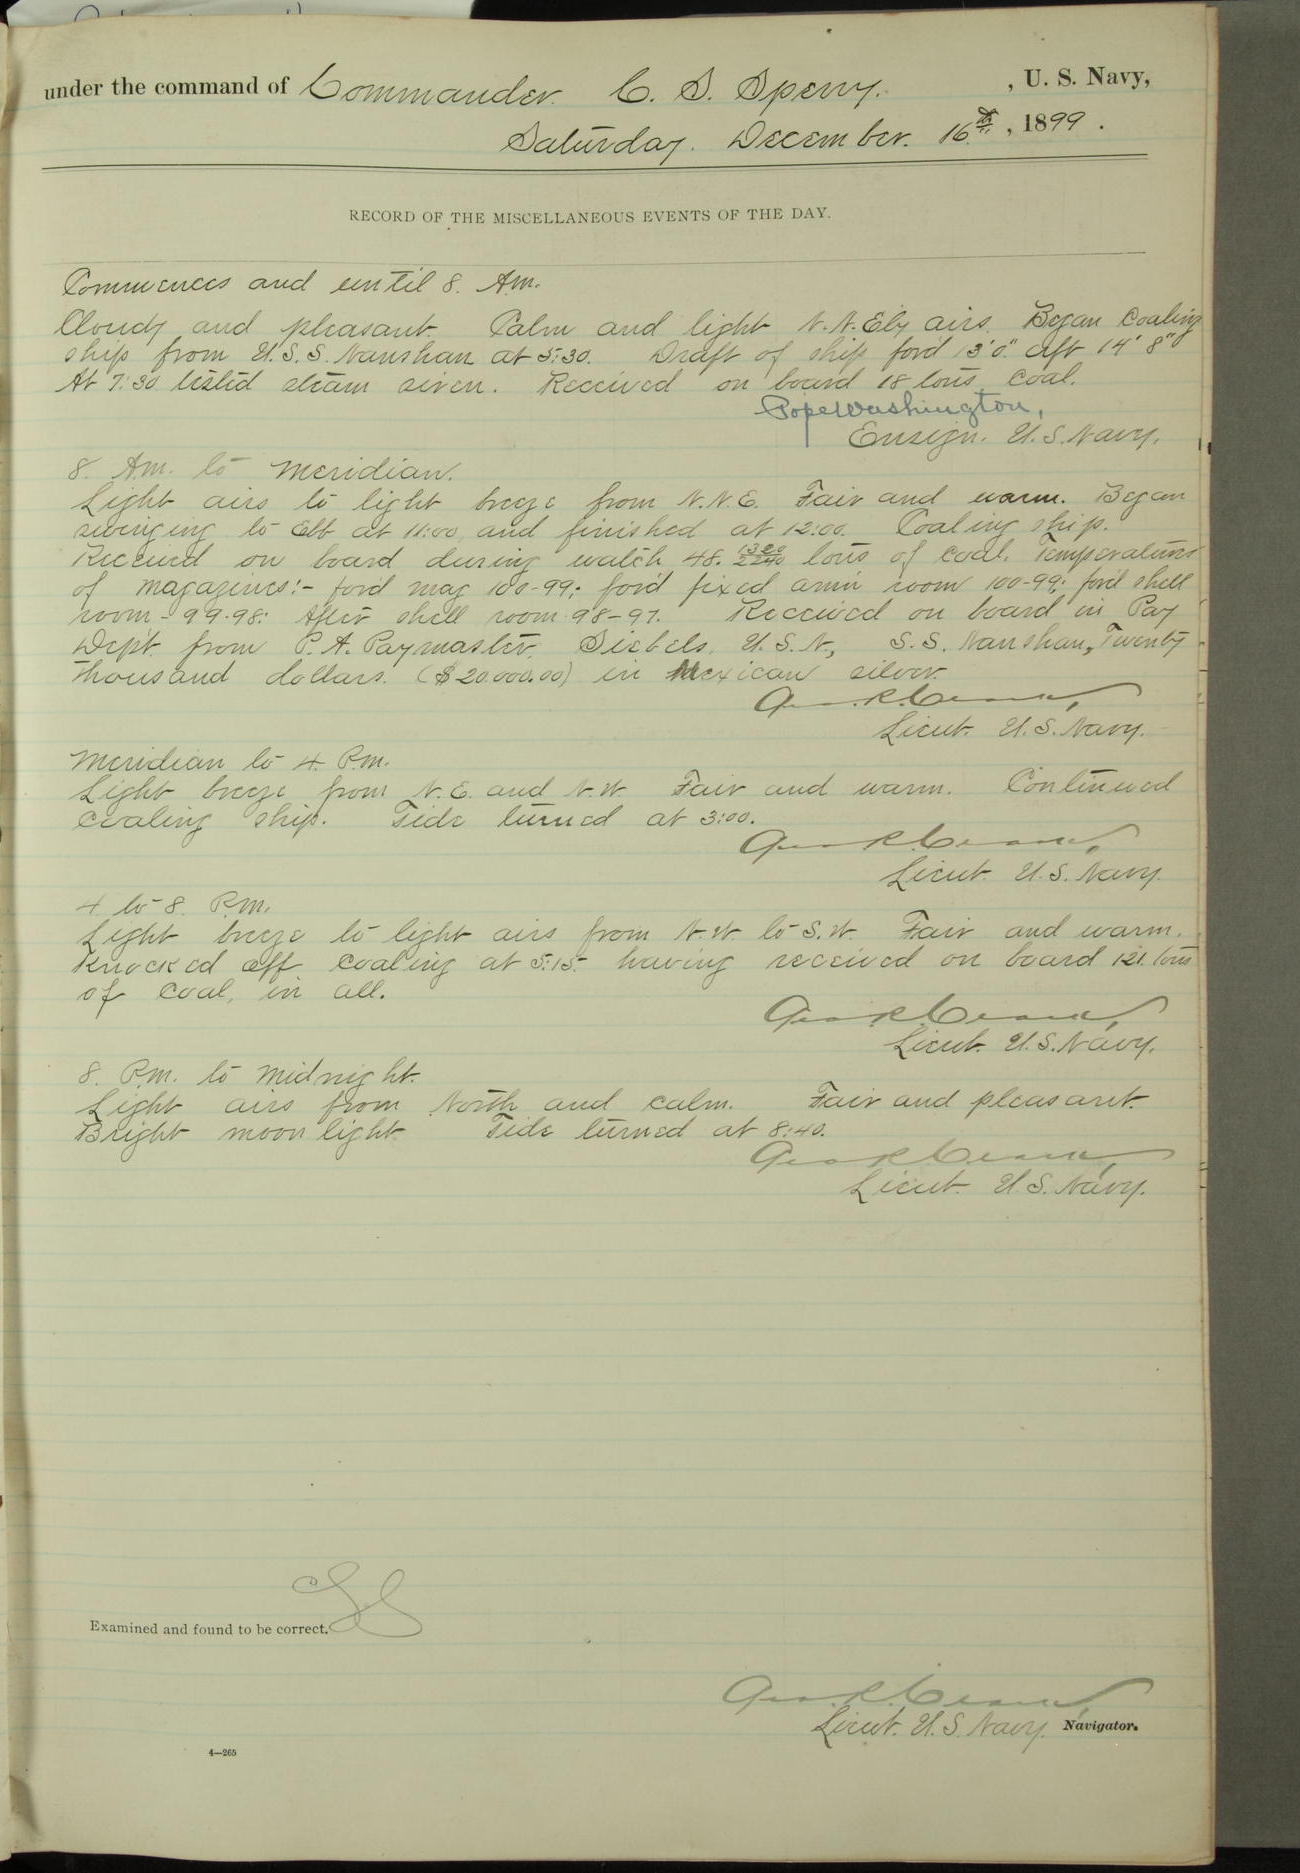 under the command of Commander C. S. Sperry, U. S. Navy,
Saturday, December 16th, 1899.
RECORD OF THE MISCELLANEOUS EVENTS OF THE DAY.
Commences and until 8. A.m.
Cloudy and pleasant Calm and light N.N.Ely airs. Began coaling
ship from U.S.S. Nanshan at 5:30. Draft of ship for'd 13' 0" aft 14' 8"
At 7:30 tested steam siren. Received on board 18 tons coal.
Pope Washington,
Ensign. U.S. Navy.
8. A.m. to meridian.
Light airs to light breeze from N.N.E. Fair and warm. Began
swinging to Ebb at 11:00, and finished at 12:00. Coaling ship.
Received on board during watch 48. 1320/2240 tons of coal. Temperatures
of magazines:- for'd mag 100-99; for'd fixed amn room 100-99; for'd shell
room - 99-98: After shell room 98-97. Received on board in Pay
Dept. from P. A. Paymaster. Siebels, U.S.N., S.S. Nanshan, Twenty
thousand dollars. ($20.000.00) in Mexican silver.
Lieut. U.S. Navy.
Meridian to 4. P.m.
Light breeze from N.E. and N.W. Fair and warm. Continued
coaling ship. Tide turned at 3:00.
Lieut. U.S. Navy.
4 to 8. P.m.
Light breeze to light airs from N.W. to S.W. Fair and warm.
Knocked off coaling at 5:15. having received on board 121. tons
of coal, in all.
Lieut. U.S. Navy.
8. P.m. to midnight.
Light airs from North and calm. Fair and pleasant.
Bright moonlight Tide turned at 8:40.
Lieut. U.S. Navy.
Examined and found to be correct.
Lieut. U.S. Navy. Navigator.
4—265